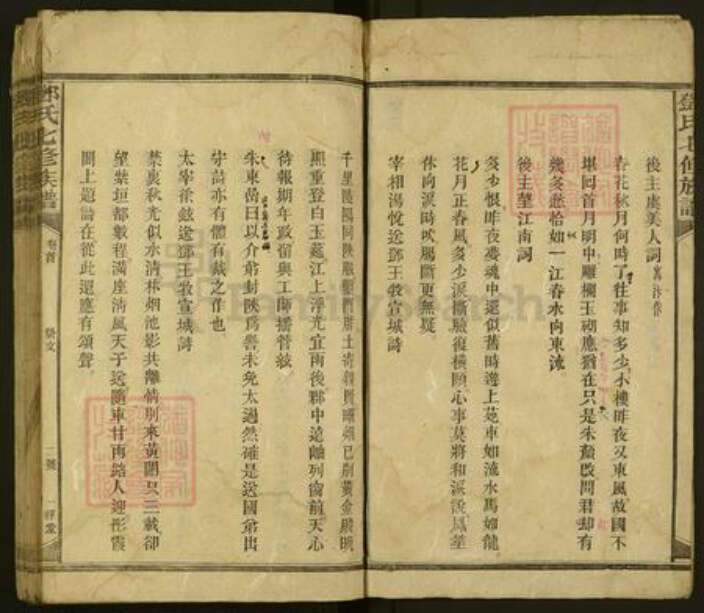 鄧氏七修族譜
後主虞美人詞
春花秋月何時了往事知多少小樓昨夜又東風故國不
堪回首月明中雕欄玉砌應猶在只是朱顏改問君却有
幾多愁恰如一江春水向東流
後主望江南詞
多少恨昨夜夢魂中還似舊時遊上苑車如流水馬如龍
花月正春風多少淚斷臉復橫頤心事莫將和淚說鳳笙
休向淚時吹腸斷更無疑
宰相湯悅送鄧王牧宣城詩
千里陵陽同陝服鑿門胙土寄親賢曙烟已別黃金殿晚
照重登白玉筵江上浮光宜雨後郡中遠岫列窗前天心
待報期年政留與工師播管絃
朱東嵒曰以介弟封陝爲譽未免太過然確是送國弟出
守詩亦有體有裁之作也
太宰徐鉉送鄧王牧宣城詩
禁裏秋光似水清林烟池影共離情別來黃閣只三載却
望紫垣都數程滿座清風天子送隨車甘雨路人迎彤霞
閣上題詩在從此還應有頌聲
鄧氏七修族譜
卷首
藝文
一評堂
FamilySearch